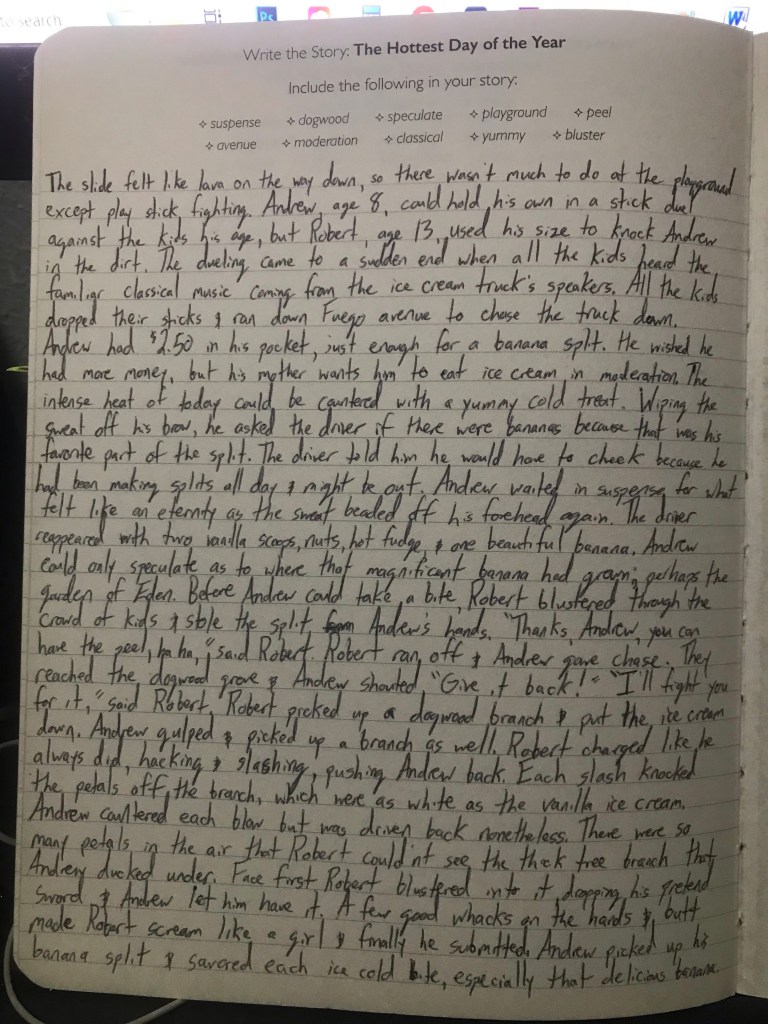 to search
Ps
W
Write the Story: The Hottest Day of the Year
Include the following in your story:
✧ suspense ✧ dogwood ✧ speculate ✧ playground ✧ peel
✧ avenue ✧ moderation ✧ classical ✧ yummy ✧ bluster
The slide felt like lava on the way down, so there wasn't much to do at the playground
except play stick fighting. Andrew, age 8, could hold his own in a stick duel
against the kids his age, but Robert, age 13, used his size to knock Andrew
in the dirt. The dueling came to a sudden end when all the kids heard the
familiar classical music coming from the ice cream truck's speakers. All the kids
dropped their sticks & ran down Fuego avenue to chase the truck down.
Andrew had $2.50 in his pocket, just enough for a banana split. He wished he
had more money, but his mother wants him to eat ice cream in moderation. The
intense heat of today could be countered with a yummy cold treat. Wiping the
sweat off his brow, he asked the driver if there were bananas because that was his
favorite part of the split. The driver told him he would have to check because he
had been making splits all day & might be out. Andrew waited in suspense for what
felt like an eternity as the sweat beaded off his forehead again. The driver
reappeared with two vanilla scoops, nuts, hot fudge, & one beautiful banana. Andrew
could only speculate as to where that magnificent banana had grown; perhaps the
garden of Eden. Before Andrew could take a bite, Robert blustered through the
crowd of kids & stole the split from Andrew's hands. "Thanks, Andrew, you can
have the peel, ha ha," said Robert. Robert ran off & Andrew gave chase. They
reached the dogwood grove & Andrew shouted "Give it back!" "I'll fight you
for it," said Robert. Robert picked up a dogwood branch & put the ice cream
down. Andrew gulped & picked up a branch as well. Robert charged like he
always did, hacking & slashing, pushing Andrew back. Each slash knocked
the petals off the branch, which were as white as the vanilla ice cream.
Andrew countered each blow but was driven back nonetheless. There were so
many petals in the air that Robert could'nt see the thick tree branch that
Andrew ducked under. Face first Robert blustered into it, dropping his pretend
sword & Andrew let him have it. A few good whacks on the hands & butt
made Robert scream like a girl & finally he submitted. Andrew picked up his
banana split & savored each ice cold bite, especially that delicious banana.